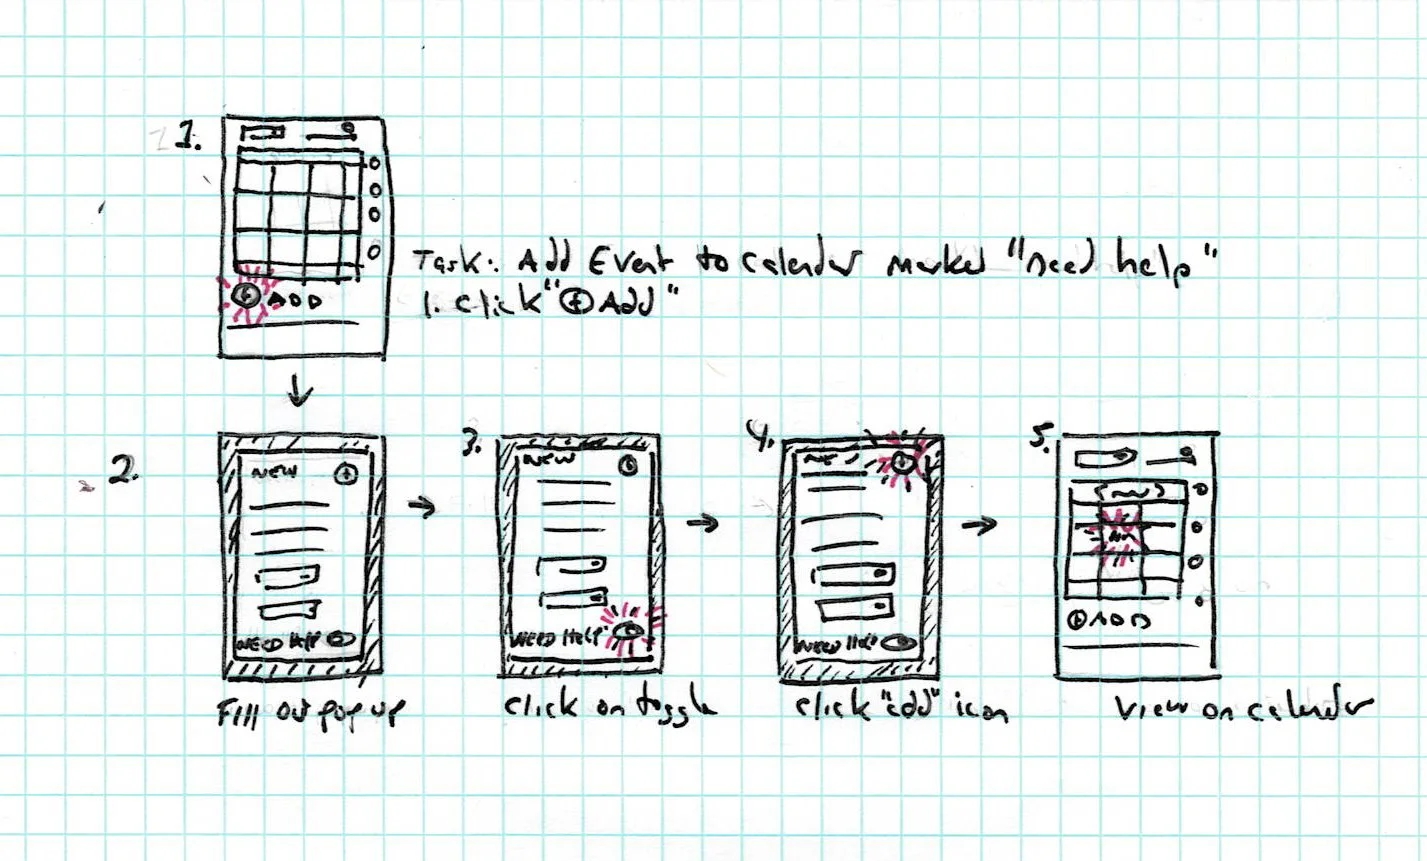 1.
ADD
Task: Add Event to calender marked "need help"
1. click "⊕ Add"
2.
NEW
NEED Help
Fill out pop up
3.
NEW
NEED Help
click on toggle
4.
NEW
NEED Help
click "add" icon
5.
⊕ ADD
View on calender